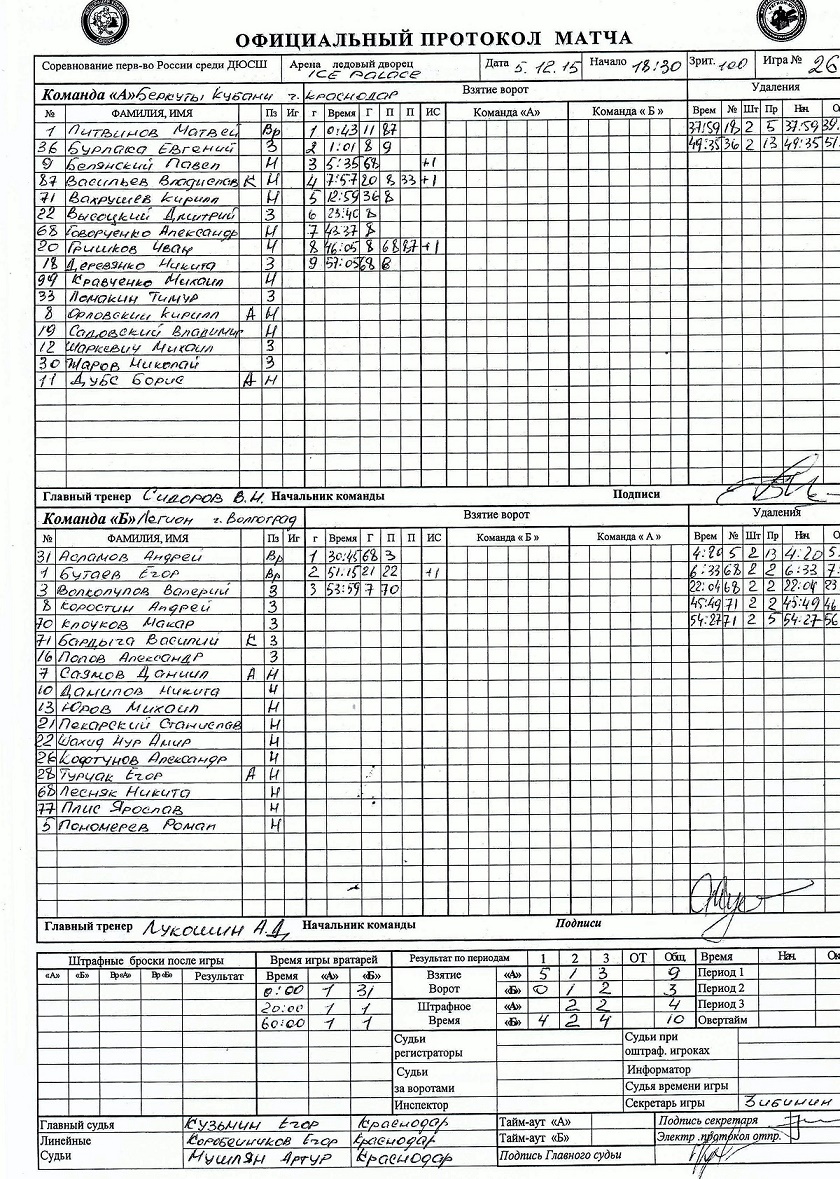 ОФИЦИАЛЬНЫЙ ПРОТОКОЛ МАТЧА
Соревнование перв-во России среди ДЮСШ Арена ледовый дворец ICE PALACE Дата 5.12.15 Начало 18:30 Зрит. 100 Игра № 26
Команда «А» Беркуты Кубани г. Краснодар Взятие ворот Удаления
№ ФАМИЛИЯ, ИМЯ Пз Иг г Время Г П П ИС Команда «А» Команда « Б » Врем № Шт Пр Нач
1 Литвинов Матвей Вр 1 0:43 11 87 37:59 18 2 5 37:59 39
36 Бурлака Евгений З 2 1:01 8 9 49:35 36 2 13 49:35 51
9 Белянский Павел Н 3 5:35 68 +1
87 Васильев Владислав К Н 4 7:57 20 8 33 +1
71 Вахрушев Кирилл Н 5 12:59 36 8
22 Высоцкий Дмитрий З 6 23:40 8
68 Говорученко Александр Н 7 43:37 8
20 Гришков Иван Н 8 46:05 8 68 87 +1
18 Деревянко Никита З 9 57:05 68 8
94 Кравченко Михаил Н
33 Ломакин Тимур З
8 Орловский Кирилл А Н
19 Садовский Владимир Н
12 Шаркевич Михаил З
30 Жаров Николай З
11 Дубс Борис А Н
Главный тренер Сидоров В.Н. Начальник команды Подписи
Команда «Б» Легион г. Волгоград Взятие ворот Удаления
№ ФАМИЛИЯ, ИМЯ Пз Иг г Время Г П П ИС Команда « Б » Команда « А » Врем № Шт Пр Нач
31 Асламов Андрей Вр 1 30:45 68 3 4:20 5 2 13 4:20 5
1 Бутаев Егор Вр 2 51.15 21 22 +1 6:33 68 2 2 6:33 7
3 Волколупов Валерий З 3 53:59 7 70 22:04 68 2 2 22:04 23
8 Коростин Андрей З 45:49 71 2 2 45:49 46
70 Клоуков Макар З 54:27 71 2 5 54:27 56
71 Бардыга Василий К З
16 Попов Александр З
7 Саямов Даниил А Н
10 Данилов Никита Н
13 Юров Михаил Н
21 Пекарский Станислав Н
22 Шахид Нур Амир Н
26 Кофтунов Александр Н
28 Турчак Егор А Н
68 Лесняк Никита Н
77 Плис Ярослав Н
5 Пономерев Роман Н
Главный тренер Лукошин А.Д. Начальник команды Подписи
Штрафные броски после игры Время игры вратарей Результат по периодам 1 2 3 ОТ Общ Время Нач
«А» «Б» Вр«А» Вр«Б» Результат Время «А» «Б» Взятие «А» 5 1 3 9 Период 1
0:00 1 31 Ворот «Б» 0 1 2 3 Период 2
20:00 1 1 Штрафное «А» 2 2 4 Период 3
60:00 1 1 Время «Б» 4 2 4 10 Овертайм
Судьи регистраторы Судьи при оштраф. игроках
Судьи за воротами Информатор
Судья времени игры
Инспектор Секретарь игры Зибинин
Главный судья Кузьмин Егор Краснодар Тайм-аут «А» Подпись секретаря
Линейные Коробейников Егор Краснодар Тайм-аут «Б» Электр .протокол отпр.
Судьи Мушлян Артур Краснодар Подпись Главного судьи